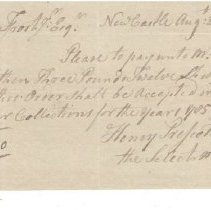 Frost Jr. Esqr. New Castle Augt.
Please to pay unto Mr.
then Three Pound Twelve
Order shall be Accepted in
Collections for the Years 1785
Henry Prescot
the Selectm